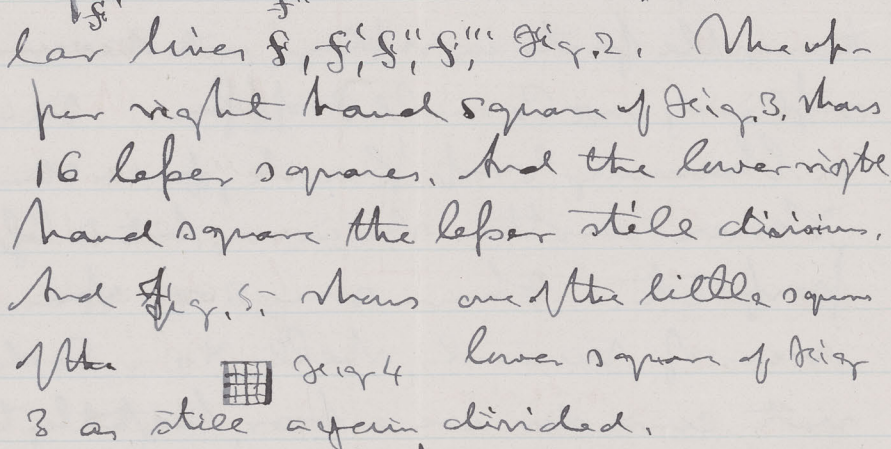 lar lines f, f', f'', f''', Fig. 2. The up-
per right hand square of Fig. 3. shows
16 lesser squares. And the lower right
hand square the lesser still divisions.
And Fig. 5. shows one of the little squares
of the Fig 4 lower square of Fig
3 as still again divided.